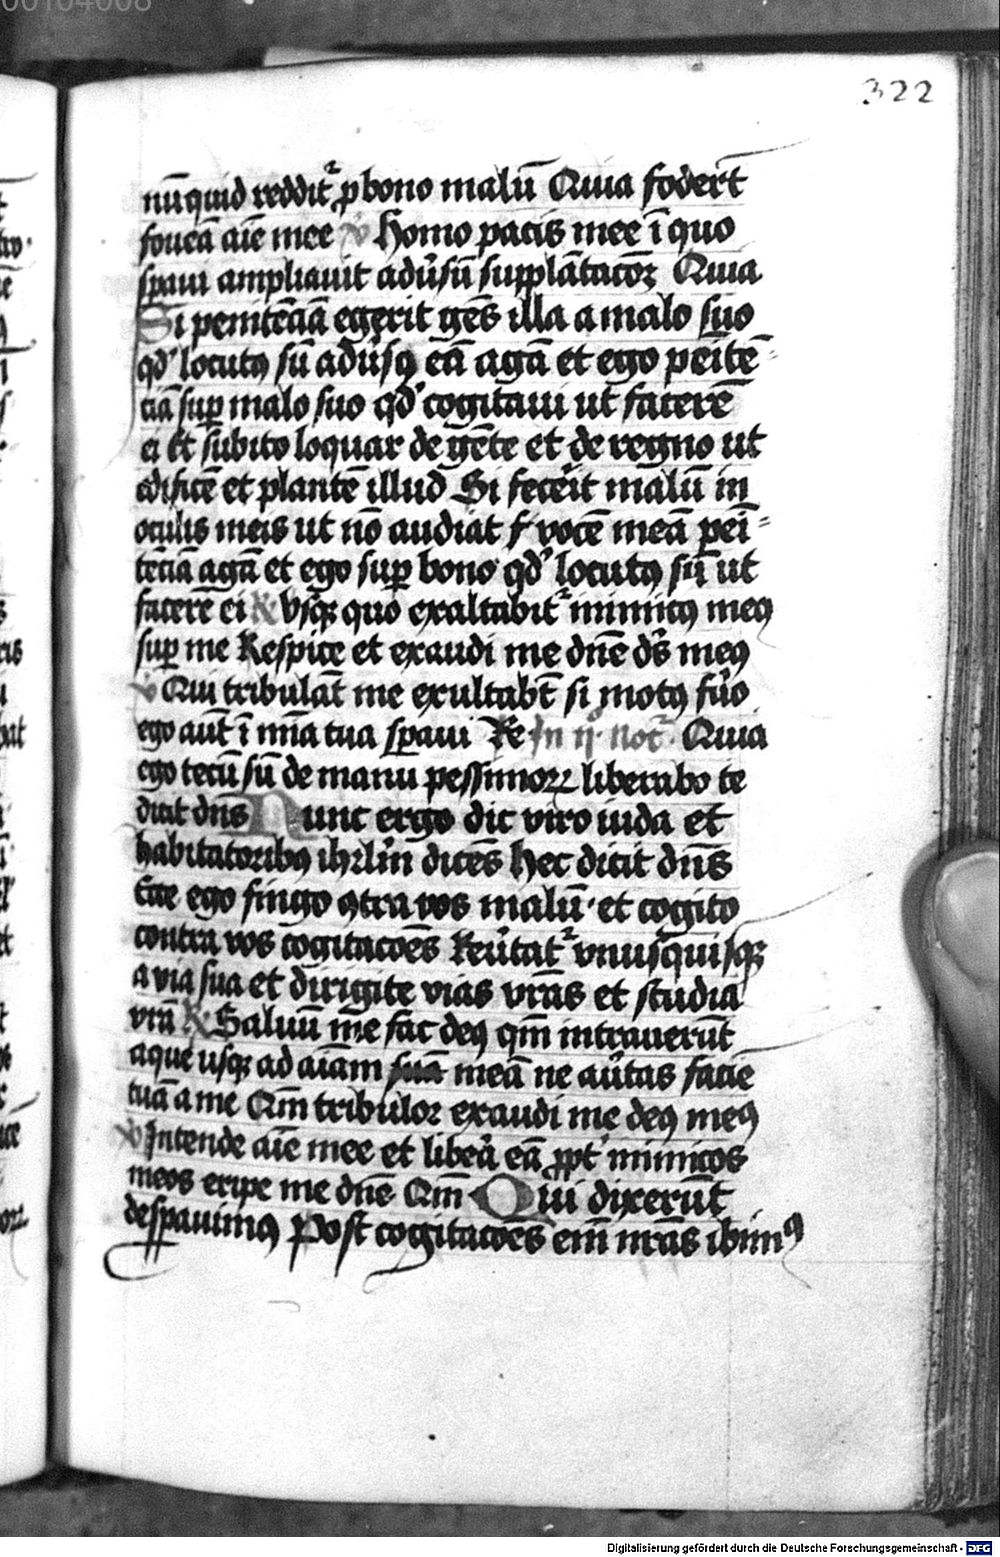 00104008
322
nūquid reddit᷑ ꝑ bono malū Quia foder̄t
foueā aīe mee ℣ Homo pacis mee ī quo
sꝑaui ampliauit adu᷑sū supplātacōꝫ Quia
Si penitēciā egerit gēs illa a malo suo
qd̓ locutꝯ sū adu᷑sꝯ eā agā et ego peītē⸗
ciā suꝑ malo suo qd̓ cogitaui ut facerē
ei Et subito loquar de gēte et de regno ut
edificē et plantē illud Si fecerit malū in
oculis meis ut nō audiāt vocē meā peī⸗
tēciā agā et ego suꝑ bono qd̓ locutꝯ sū ut
facerē ei ℟ Vsqꝫ quo exaltabit᷑ inimicꝯ meꝯ
suꝑ me Respice et exaudi me dn̄e ds̄ meꝯ
℣ Qui tribulāt me exultabt̄ si motꝯ fu᷑o
ego aūt ī mīa tua sꝑaui Re In ij° noct᷑ Quia
ego tecū sū de manu pessimoꝝ liberabo te
dicit dn̄s Nunc ergo dic viro iuda et
habitatoribꝯ ihrlm̄ dicēs hec dicit dn̄s
Ecce ego fingo ꝯtra vos malū · et cogito
contra vos cogitacōes Reu᷑tat᷑ vnusquisqꝫ
a via sua et dirigite vias vr̄as et studia
vr̄a ℟ Saluū me fac deꝯ qm̄ intrauerūt
aque usqꝫ ad aīam suā meā ne au᷑tas faciē
tuā a me Qm̄ tribulor exaudi me deꝯ meꝯ
℣ Intende aīe mee et libe᷑a eā ꝓpt᷑ inimicos
meos eripe me dn̄e Qm̄ Qui dixerūt
desꝑauimꝯ Post cogitacōes em̄ nr̄as ibimꝯ
Digitalisierung gefördert durch die Deutsche Forschungsgemeinschaft - DFG